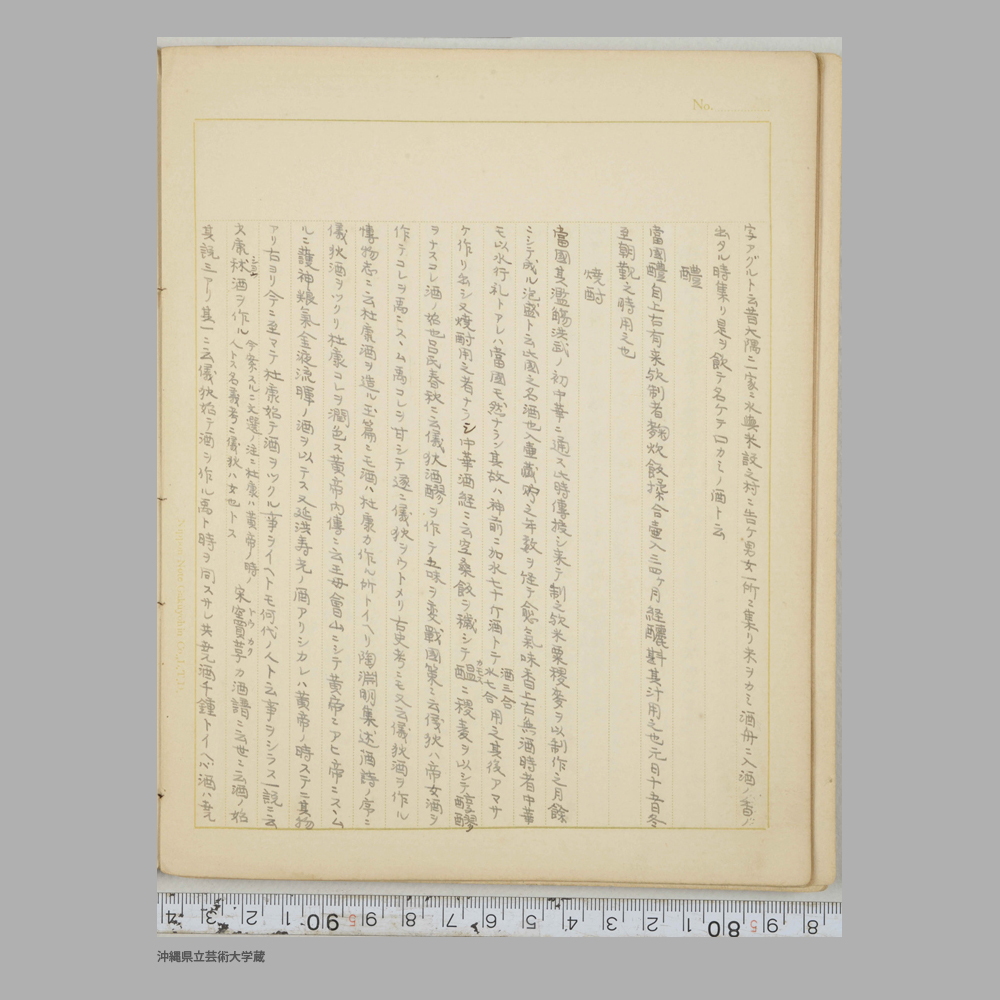 No.
字アグルト云昔大隅ニ一家ニ水與米設之村ニ告ケ男女一所ニ集リ米ヲカミ酒舟ニ入酒ノ香ノ
出タル時集リ是ヲ飲テ名ケテ口カミノ酒ト云
醴
當國醴自上古有来欤制者麹炊飯揉合壷入三四ヶ月経釀斟其汁用之也元日十五日冬
至朝覲之時用之也
焼酎
當國其濫觴洪武ノ初中華ニ通ス此時傳授シ来テ制之欤米粟稷麥ヲ以制作之月餘
ニシテ成ル泡盛ト云此國之名酒也入壷藏納之年数ヲ怪テ愈氣味香上古無酒時者中華
モ以水行礼トアレハ當國モ然ナラン其故ハ神前ニ加水七十ケ酒トテ酒三合水七合用之其後アマサ
ケ作リ出シ又焼酎用之者ナラシ中華酒経ニ云空桑飯ヲ穢シテ醞カモスニ稷麦ヲ以シテ醇醪
ヲナスコレ酒ノ始也呂氏春秋ニ云儀狄酒醪ヲ作テ五味ヲ変戰國策ニ云儀狄ハ帝女酒ヲ
作テコレヲ禹ニスヽム禹コレヲ甘シテ遂ニ儀狄ヲウトメリ古史考ニモ又云儀狄酒ヲ作ル
博物志ニ云杜康酒ヲ造ル玉篇ニモ酒ハ杜康カ作ル所トイヘリ陶淵明集述酒詩ノ序ニ
儀狄酒ヲツクリ杜康コレヲ潤色ス黄帝内傳ニ云王母會山ニシテ黄帝ニアヒ帝ニスヽム
ルニ護神娘氣金液流暉ノ酒ヲ以テス又延洪寿光ノ酒アリシカレハ黄帝ノ時ステニ其物
アリ古ヨリ今ニ至マテ杜康始テ酒ヲツクル事ヲイヘトモ何代ノ人ト云事ヲシラス一説ニ云
大康秫酒ヲ作ル今案スルニ文選ノ注ニ杜康ハ黄帝ノ時ノ人トス名義考ニ儀狄ハ女也トス宋竇苹カ酒譜ニ云世ニ云酒ノ始
其説三アリ其一ニ云儀狄始テ酒ヲ作ル禹ト時ヲ同スサレ共尭酒千鍾トイヘハ心酒ハ尭
3 2 1 90 9 8 7 6 5 4 3 2 1 80 9 8
沖縄県立芸術大学蔵